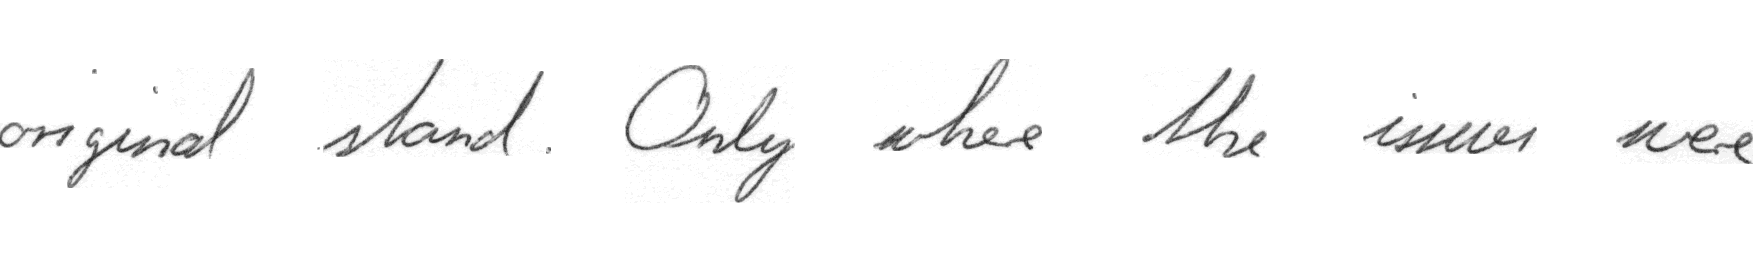 original stand. Only where the issues were